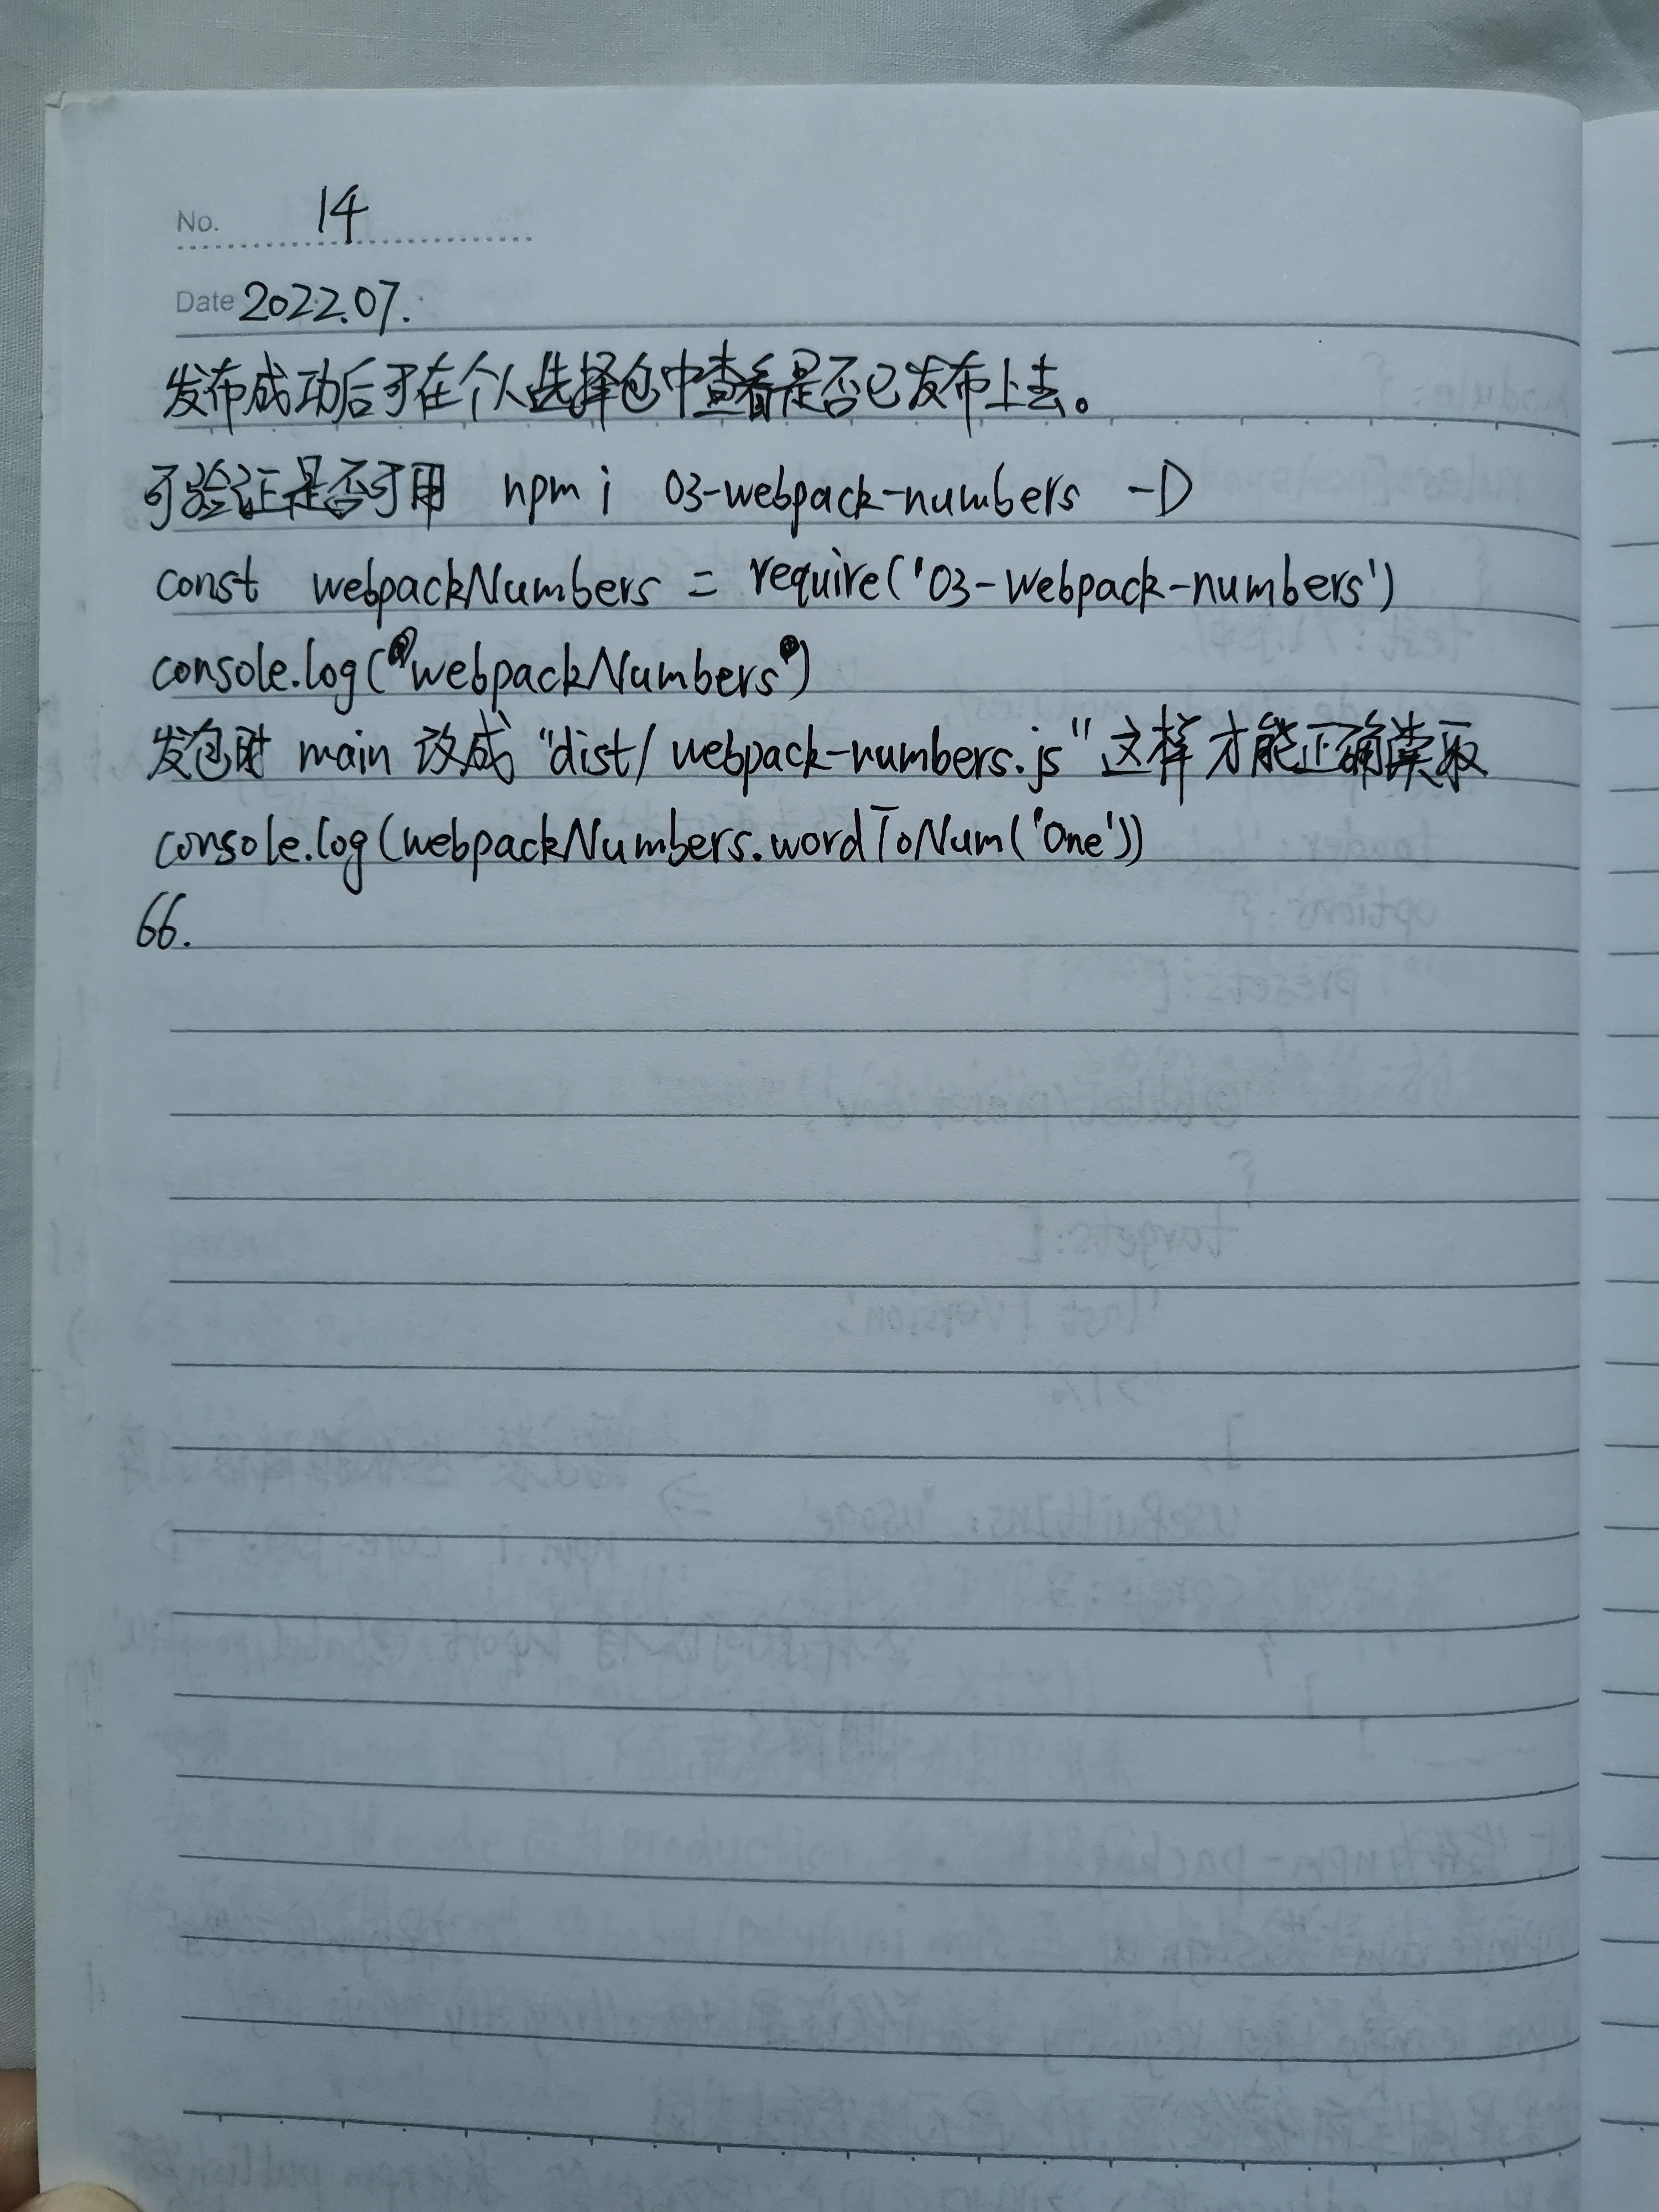 No. 14
Date 2022.07.
发布成功后可在个人选择包中查看是否已发布上去。
可验证是否可用 npm i 03-webpack-numbers -D
const webpackNumbers = require('03-webpack-numbers')
console.log(webpackNumbers)
发包时 main 改成 "dist/webpack-numbers.js" 这样才能正确读取
console.log(webpackNumbers.wordToNum('One'))
66.